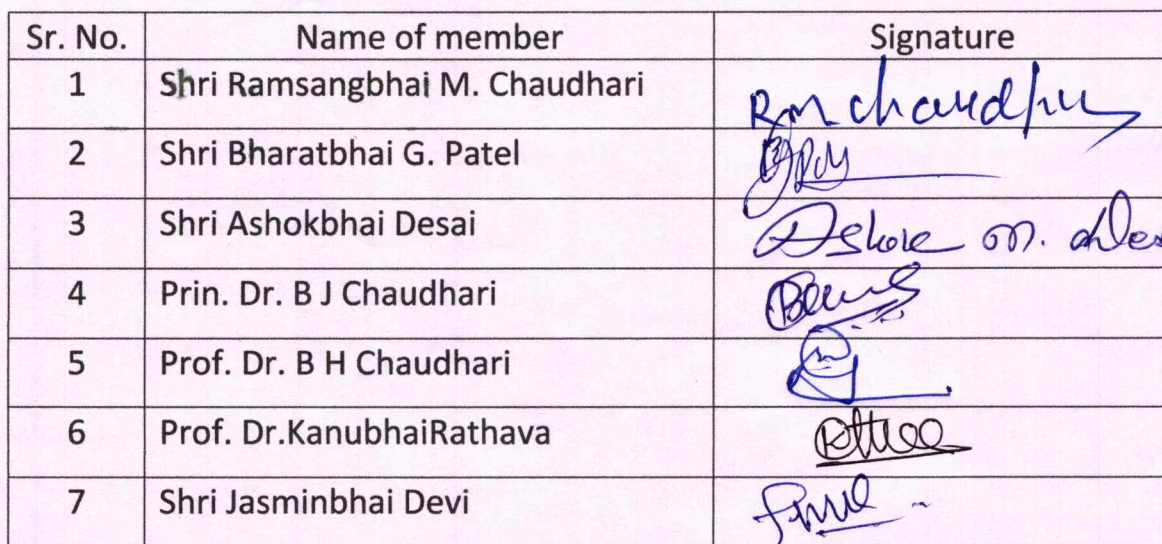 Sr. No. Name of member Signature
1 Shri Ramsangbhai M. Chaudhari Rm chaudhu
2 Shri Bharatbhai G. Patel
3 Shri Ashokbhai Desai Ashok m.
4 Prin. Dr. B J Chaudhari
5 Prof. Dr. B H Chaudhari
6 Prof. Dr.KanubhaiRathava
7 Shri Jasminbhai Devi